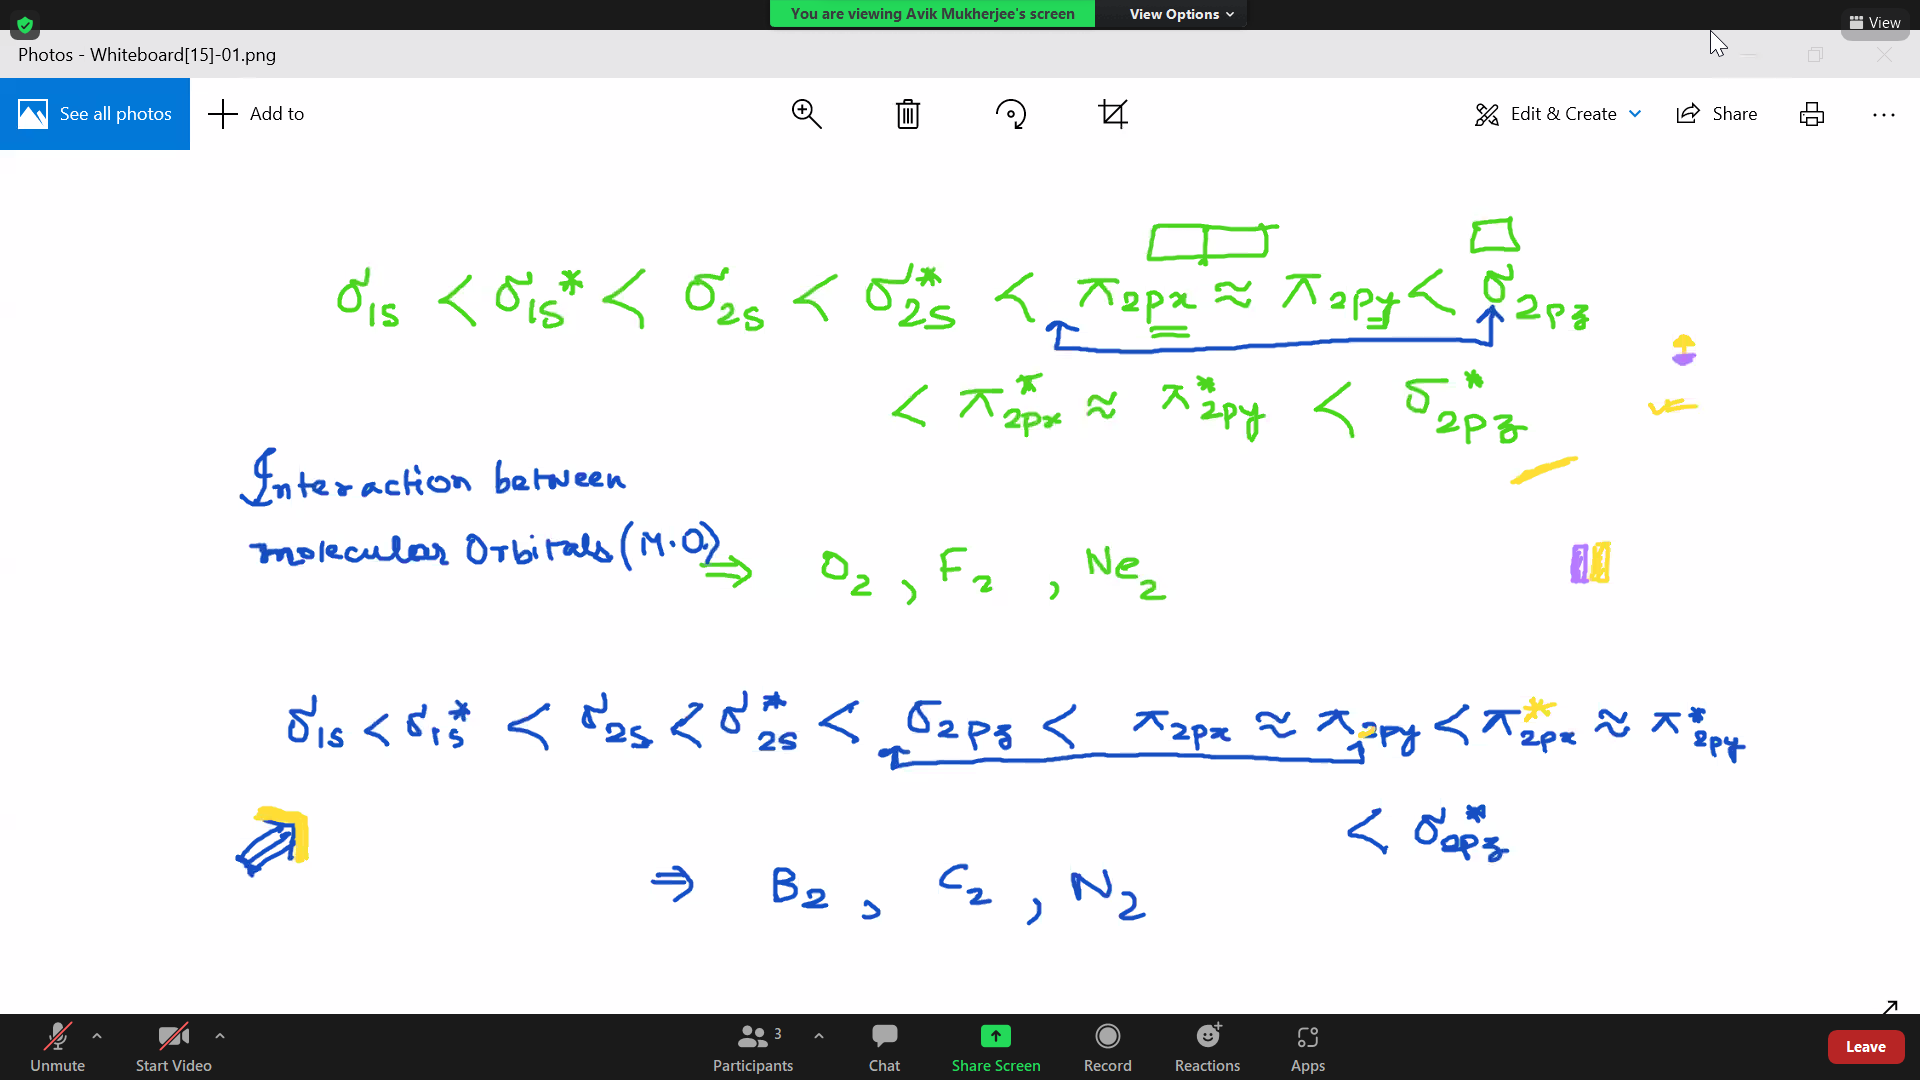 You are viewing Avik Mukherjee's screen View Options
View
Photos - Whiteboard[15]-01.png
See all photos Add to Edit & Create Share
σ1s < σ1s* < σ2s < σ*2s < π2px ≈ π2py < σ2pz
< π*2px ≈ π*2py < σ*2pz
Interaction between
molecular Orbitals (M.O.)
⇒ O2, F2, Ne2
σ1s < σ1s* < σ2s < σ*2s < σ2pz < π2px ≈ π2py < π*2px ≈ π*2py
< σ*2pz
⇒ B2, C2, N2
3
Unmute Start Video Participants Chat Share Screen Record Reactions Apps Leave